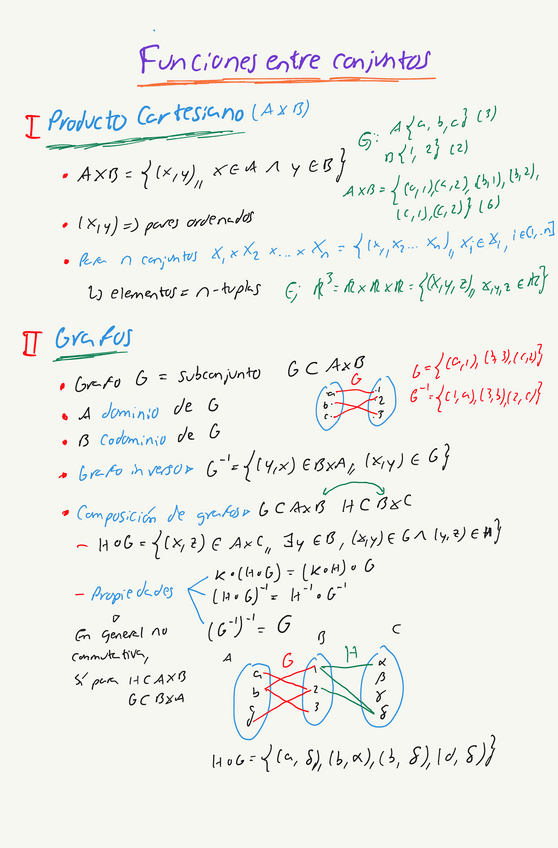 Funciones entre conjuntos
I Producto Cartesiano (A×B)
Ej: A{a, b, c} (3)
B{1, 2} (2)
• A×B = {(x,y),, x∈A ∧ y∈B}
A×B = {(a,1),(a,2),(b,1),(b,2),
(c,1),(c,2)} (6)
• (x,y) => pares ordenados
• Para n conjuntos X₁ × X₂ × ... × Xₙ = {(x₁, x₂ ... xₙ),, xᵢ ∈ Xᵢ, i∈[1..n]
↳ elementos = n-tuplas
Ej ℝ³ = ℝ×ℝ×ℝ = {(x,y,z),, x,y,z ∈ ℝ}
II Grafos
• Grafo G = subconjunto G ⊂ A×B
G = {(a,1),(b,3),(c,2)}
G⁻¹ = {(1,a),(3,b),(2,c)}
G
a 1
b 2
c 3
• A dominio de G
• B codominio de G
• Grafo inverso G⁻¹ = {(y,x) ∈ B×A,, (x,y) ∈ G}
• Composición de grafos G ⊂ A×B H ⊂ B×C
– H∘G = {(x,z) ∈ A×C,, ∃y ∈ B, (x,y) ∈ G ∧ (y,z) ∈ H}
– Propiedades
K∘(H∘G) = (K∘H)∘G
(H∘G)⁻¹ = H⁻¹∘G⁻¹
(G⁻¹)⁻¹ = G
En general no
conmutativa,
Sí para H ⊂ A×B
G ⊂ B×A
A G B H C
a 1 α
b 2 β
3 γ
δ δ
H∘G = {(a, δ),(b, α),(b, δ),(d, δ)}